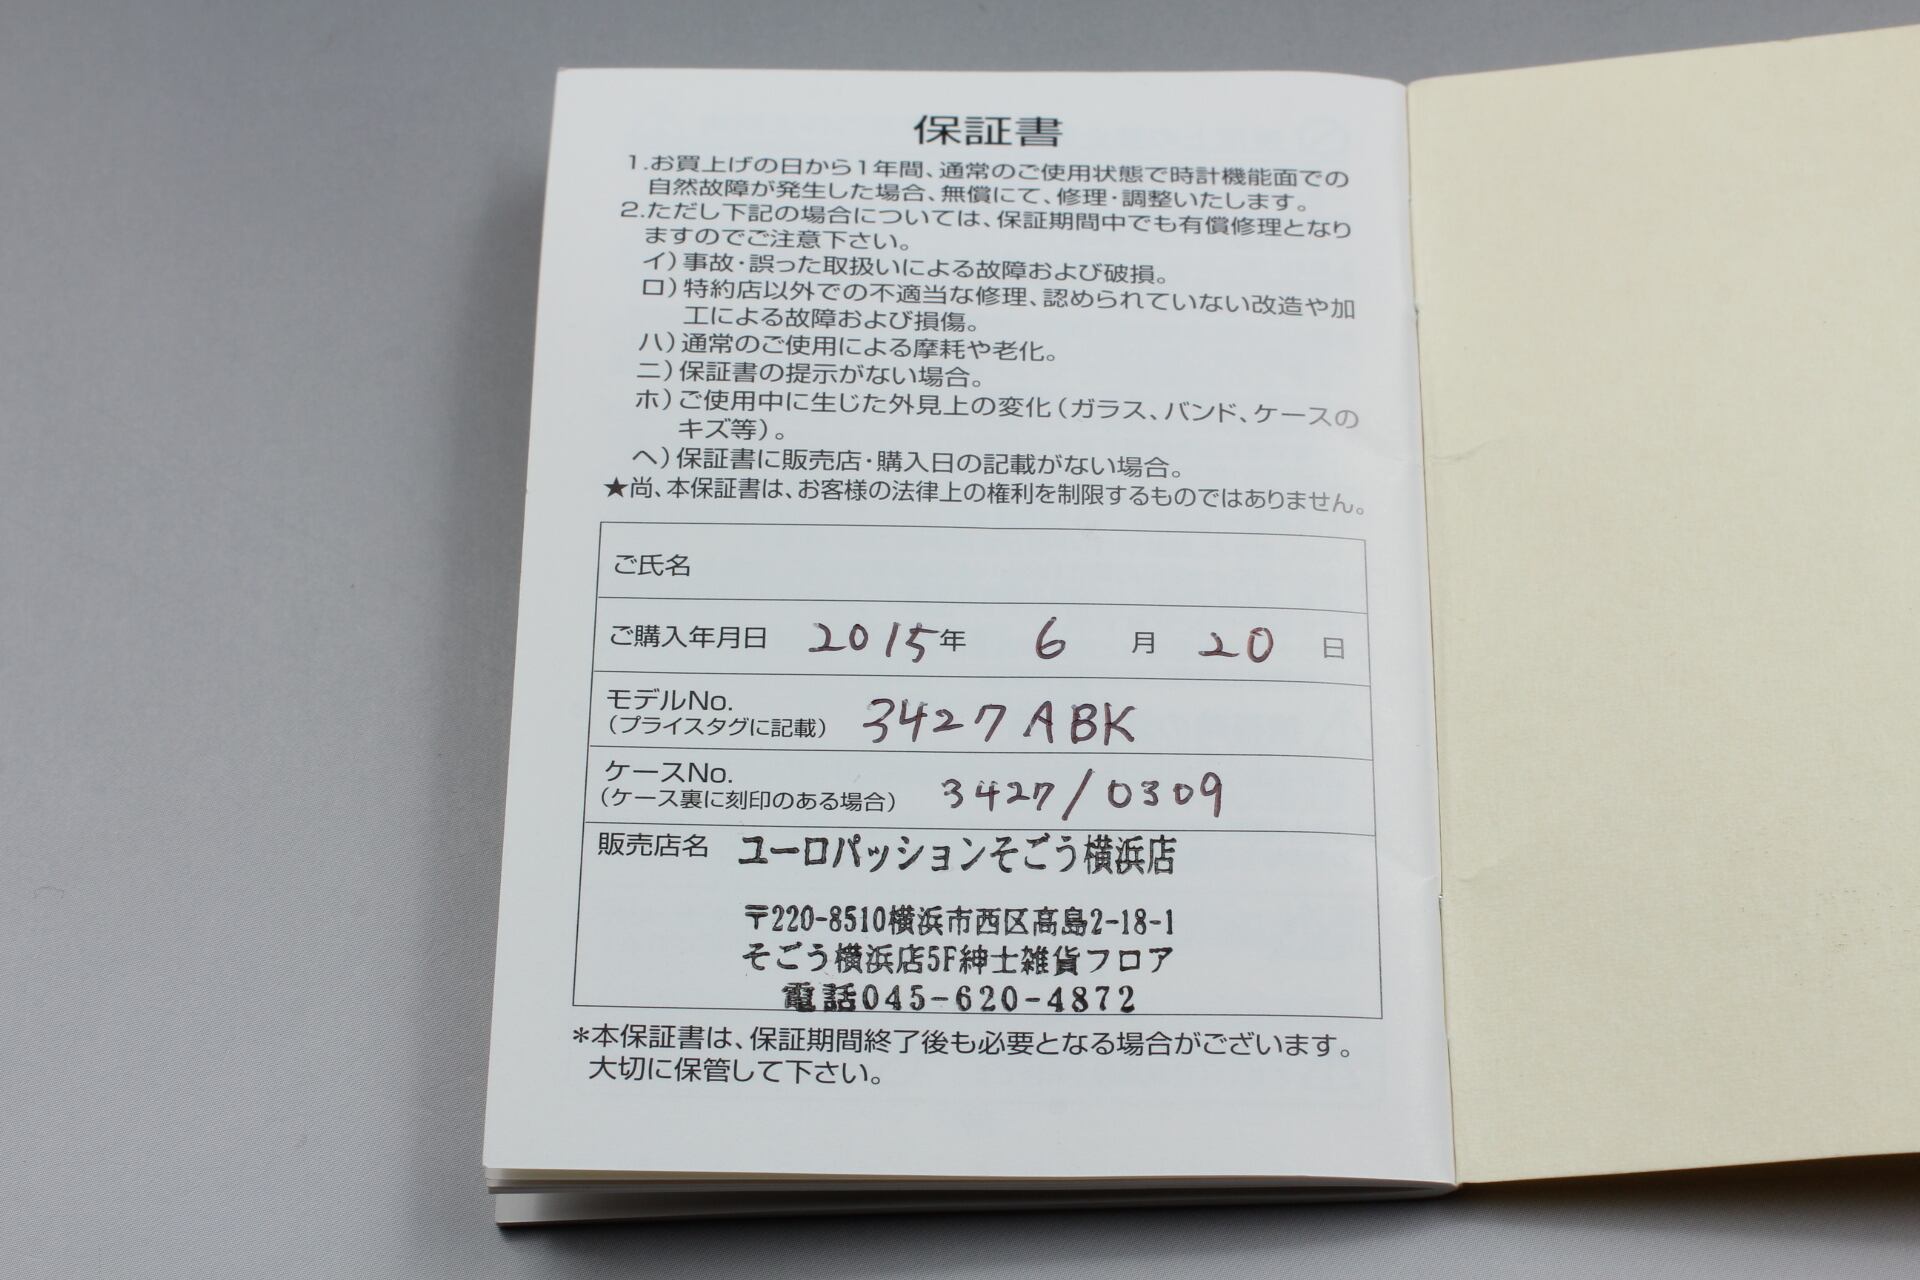 保証書
1.お買上げの日から1年間、通常のご使用状態で時計機能面での
自然故障が発生した場合、無償にて、修理・調整いたします。
2.ただし下記の場合については、保証期間中でも有償修理となり
ますのでご注意下さい。
イ）事故・誤った取扱いによる故障および破損。
ロ）特約店以外での不適当な修理、認められていない改造や加
工による故障および損傷。
ハ）通常のご使用による摩耗や老化。
ニ）保証書の提示がない場合。
ホ）ご使用中に生じた外見上の変化（ガラス、バンド、ケースの
キズ等）。
ヘ）保証書に販売店・購入日の記載がない場合。
★尚、本保証書は、お客様の法律上の権利を制限するものではありません。
ご氏名
ご購入年月日 2015年 6 月 20 日
モデルNo.
（プライスタグに記載） 3427 ABK
ケースNo.
（ケース裏に刻印のある場合） 3427/0309
販売店名 ユーロパッションそごう横浜店
〒220-8510横浜市西区高島2-18-1
そごう横浜店5F紳士雑貨フロア
電話045-620-4872
＊本保証書は、保証期間終了後も必要となる場合がございます。
大切に保管して下さい。